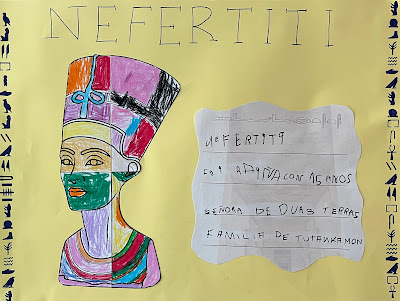 NEFERTITI
NEFERTITI
FOI RAÍÑA CON 15 ANOS
SEÑORA DE DUAS TERRAS
FAMILIA DE TUTANKAMON